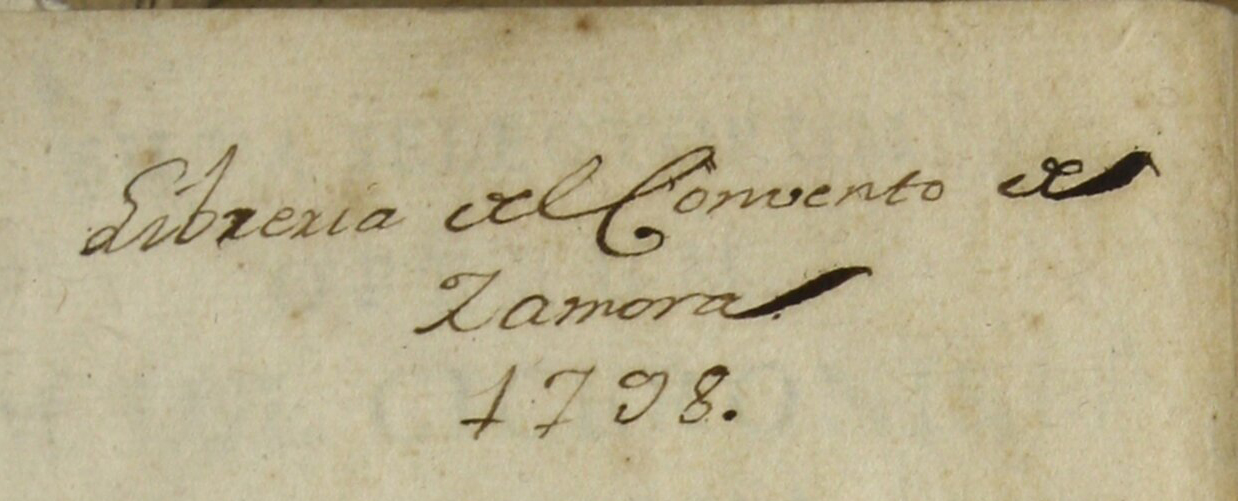 Libreria del Convento de
Zamora
1798.